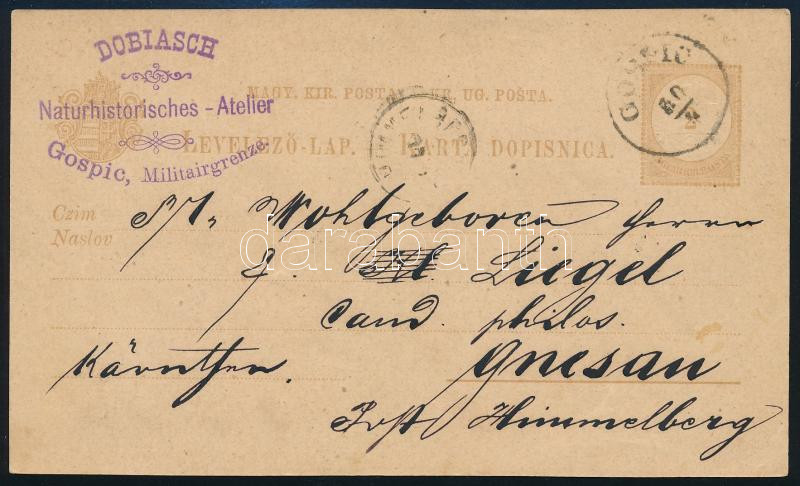 DOBIASCH
Naturhistorisches-Atelier
Gospic, Militairgrenze.
MAGY. KIR. POSTA. KR. UG. POŠTA.
LEVELEZŐ-LAP. KART. DOPISNICA.
GOSPIĆ
Czim
Naslov
Wohlgeboren Herrn
J. Liegel
Cand. philos.
Gnesau
Kärnthen.
Post Himmelberg
darabanth